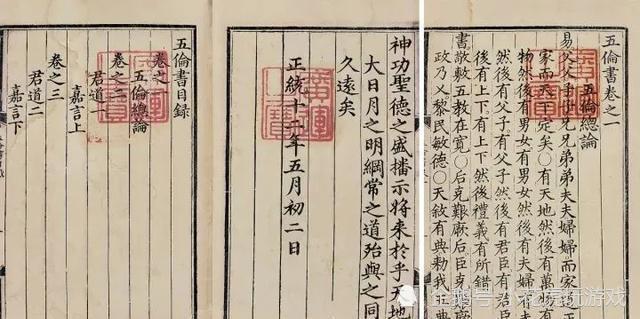 五倫書卷之一
五倫總論
易父父子子兄兄弟弟夫夫婦婦而家
家而天下定矣○有天地然後有萬
物然後有男女有男女然後有夫婦
然後有父子有父子然後有君臣有君
後有上下有上下然後禮義有所錯
書敬敷五教在寬○后克艱厥后臣克艱厥
政乃乂黎民敏德○天敘有典勑我
神功聖德之盛播示將來於乎天地
大日月之明綱常之道殆與之同
久遠矣
正統十二年五月初二日
廣運之寶
五倫書目錄
卷之一
五倫總論
卷之二
君道一
嘉言上
卷之三
君道二
嘉言下
企鹅号 花房玩游戏